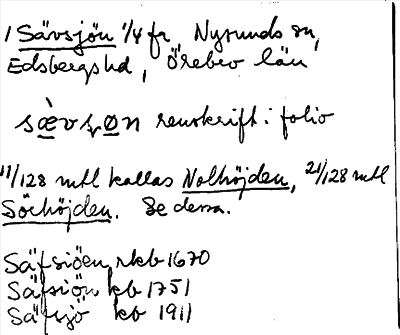 1 Sävsjön 1/4 fr Nysunds sn,
Edsbergs hd, Örebro län
sæ̀vʂøn renskrift i folio
11/128 mtl kallas Nolhöjden, 21/128 mtl
Sörhöjden. Se dessa.
Säfsiöen, rkb 1670
Säfsiön kb 1751
Säfsjö kb 1911